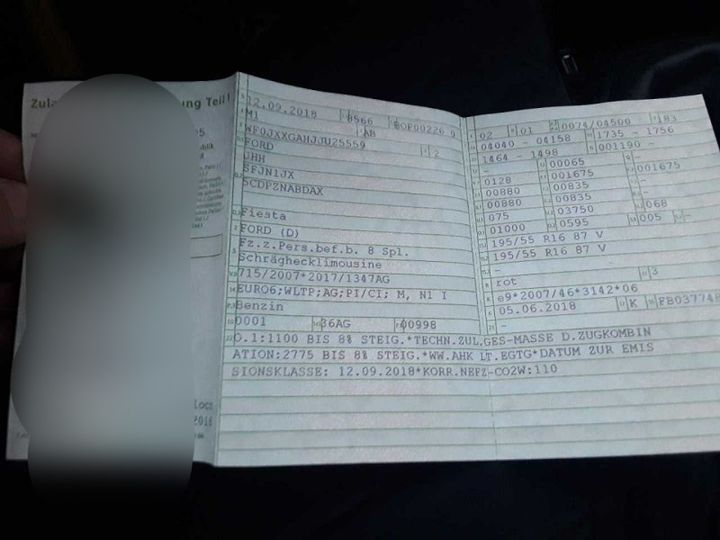 Zula ung Teil I
12.09.2018 8566 BOF00226 9
M1 AB
WF0JXXGAHJJU25559 2
FORD
JHH
SFJN1JX
5CDPZNABDAX
Fiesta
FORD (D)
Fz.z.Pers.bef.b. 8 Spl.
Schräghecklimousine
715/2007*2017/1347AG
EURO6;WLTP;AG;PI/CI; M, N1 I
Benzin
0001 36AG 00998
02 01 0074/04500 183
04040 - 04158 1735 - 1756
1464 - 1498 001190 -
- 00065 -
0128 001675 001675
00880 00835 -
00880 00835 -
075 03750 068
01000 0595 005 -
195/55 R16 87 V
195/55 R16 87 V
-
rot 3
e9*2007/46*3142*06
05.06.2018 K FB03774
-
O.1:1100 BIS 8% STEIG.*TECHN.ZUL.GES-MASSE D.ZUGKOMBIN
ATION:2775 BIS 8% STEIG.*WW.AHK LT.EGTG*DATUM ZUR EMIS
SIONSKLASSE: 12.09.2018*KORR.NEFZ-CO2W:110